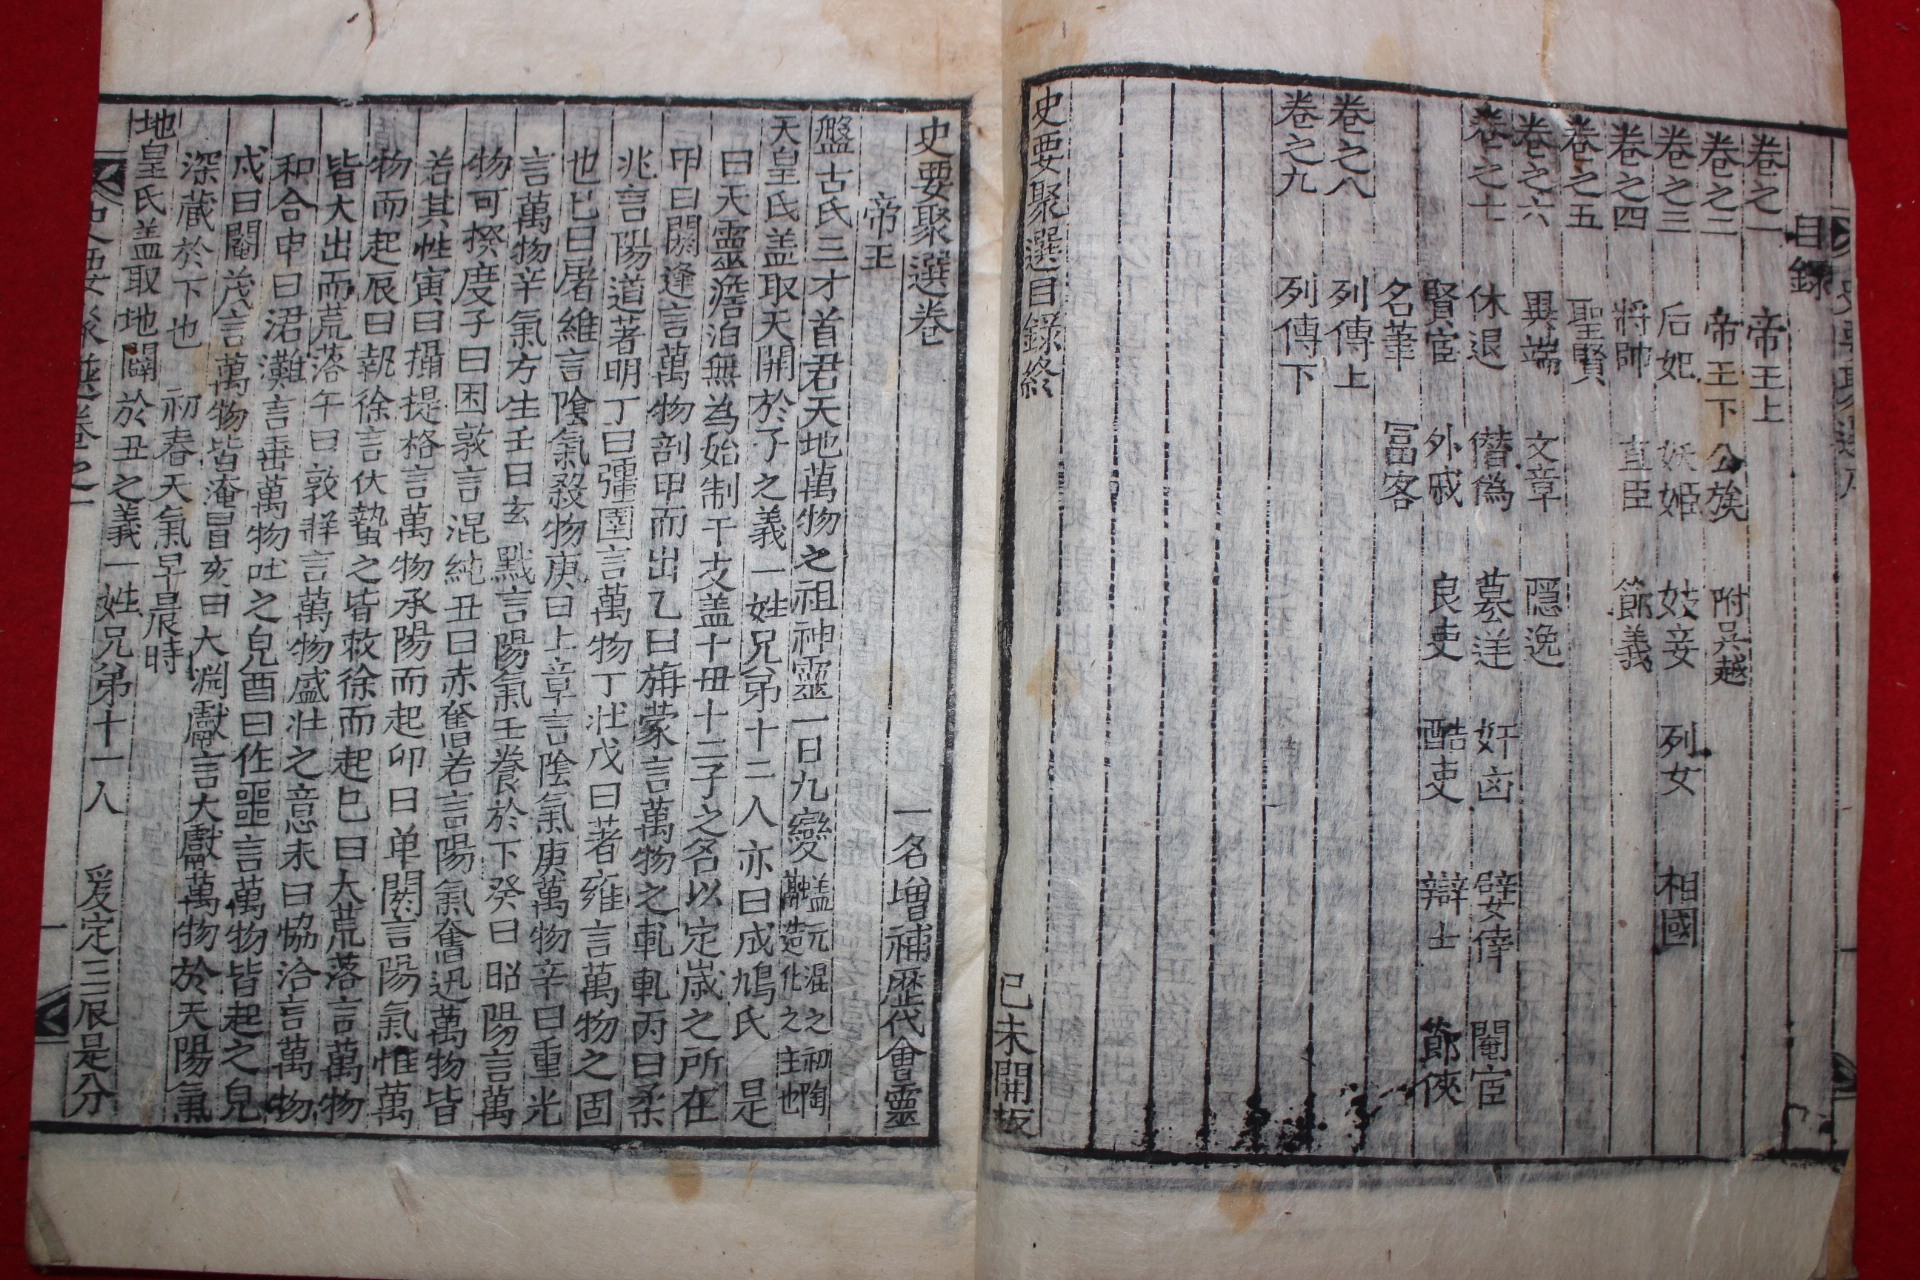 目錄
卷之一 帝王上
卷之二 帝王下 公族 附吳越
卷之三 后妃 妖姬 妓妾 列女 相國
卷之四 將帥 直臣 節義
卷之五 聖賢
卷之六 異端 文章 隱逸
卷之七 休退 僭僞 墓逆 奸凶 嬖倖 閹宦
賢宦 外戚 良吏 酷吏 辯士 節俠
名筆 冨客
卷之八 列傳上
卷之九 列傳下
史要聚選目錄終 己未開板
史要聚選卷 一名增補歷代會靈
帝王
盤古氏三才首君天地萬物之祖神靈一日九變 盖元混之初陶融造化之主也
天皇氏盖取天開於子之義一姓兄弟十二人亦曰成鳩氏 是
曰天靈澹泊無為始制干支盖十毌十二子之名以定歲之所在
甲曰閼逢言萬物剖甲而出乙曰旃蒙言萬物之軋軋丙曰柔
兆言陽道著明丁曰彊圉言萬物丁壯戊曰著雍言萬物之固
也己曰屠維言陰氣殺物庚曰上章言陰氣庚萬物辛曰重光
言萬物辛氣方生壬曰玄黓言陽氣壬養於下癸曰昭陽言萬
物可揆度子曰困敦言混純丑曰赤奮若言陽氣奮迅萬物皆
若其性寅曰攝提格言萬物承陽而起卯曰单閼言陽氣惟萬
物而起辰曰執徐言伏蟄之皆敕徐而起巳曰大荒落言萬物
皆大出而荒落午曰敦牂言萬物盛壯之意未曰協洽言萬物
和合申曰涒灘言垂萬物吐之皃酉曰作噩言萬物皆起之皃
戌曰閹茂言萬物皆淹冒亥曰大淵獻言大獻萬物於天陽氣
深藏於下也 初春天氣早晨時
地皇氏盖取地闢於丑之義一姓兄弟十一人 爰定三辰是分